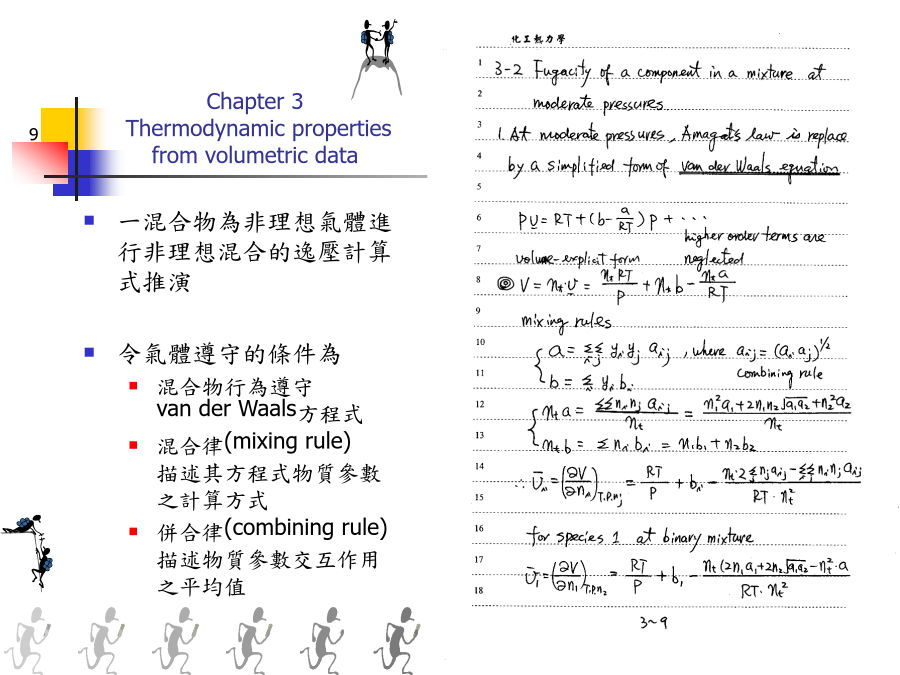 9
Chapter 3
Thermodynamic properties
from volumetric data
一混合物為非理想氣體進
行非理想混合的逸壓計算
式推演
令氣體遵守的條件為
混合物行為遵守
van der Waals方程式
混合律(mixing rule)
描述其方程式物質參數
之計算方式
併合律(combining rule)
描述物質參數交互作用
之平均值
化工熱力學
1 3-2 Fugacity of a component in a mixture at
2 moderate pressures
3 1. At moderate pressures, Amagat's law is replace
4 by a simplified form of van der Waals equation
5
6 PV = RT + (b - a/RT)P + ···
higher order terms are
7 volume-explicit form neglected
8 ◎ V = n_t·v = n_t RT/P + n_t b - n_t a/RT
9 mixing rules
10 { a = Σ_i Σ_j y_i y_j a_ij , where a_ij = (a_i a_j)^1/2
11 b = Σ_i y_i b_i combining rule
12 { n_t a = ΣΣ n_i n_j a_ij / n_t = n_1² a_1 + 2n_1 n_2 √a_1a_2 + n_2² a_2 / n_t
13 n_t b = Σ n_i b_i = n_1 b_1 + n_2 b_2
14 ∴ v̄_i = (∂V/∂n_i)_T,P,n_j = RT/P + b_i - n_t·2Σ_j n_j a_ij - Σ_i Σ_j n_i n_j a_ij / RT·n_t²
15
16 for species 1 at binary mixture
17 v̄_1 = (∂V/∂n_1)_T,P,n_2 = RT/P + b_1 - n_t (2n_1 a_1 + 2n_2 √a_1a_2 - n_t²·a / RT·n_t²
18
3~9